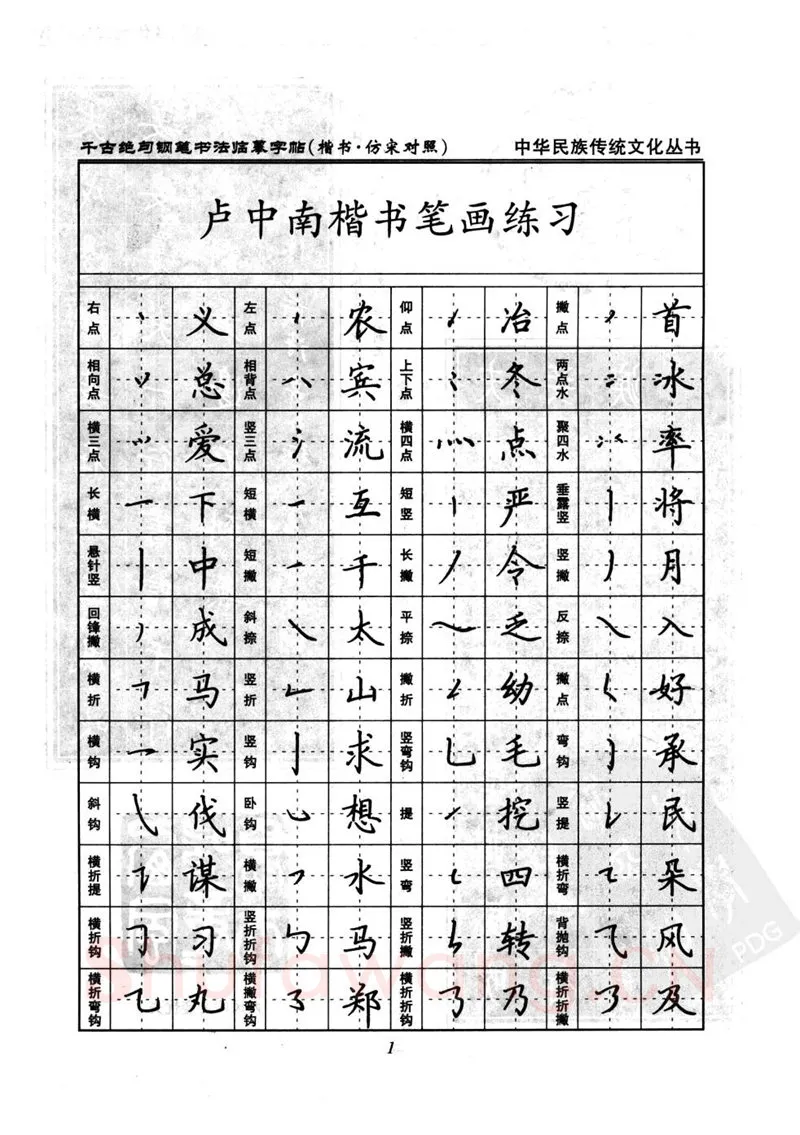 千古绝句钢笔书法临摹字帖(楷书·仿宋对照) 中华民族传统文化丛书
卢中南楷书笔画练习
右点 义 左点 农 仰点 冶 撇点 首
相向点 总 相背点 宾 上下点 冬 两点水 冰
横三点 爱 竖三点 流 横四点 点 聚四水 率
长横 下 短横 互 短竖 严 垂露竖 将
悬针竖 中 短撇 千 长撇 令 竖撇 月
回锋撇 成 斜捺 太 平捺 乏 反捺 入
横折 马 竖折 山 撇折 幼 撇点 好
横钩 实 竖钩 求 竖弯钩 毛 弯钩 承
斜钩 伐 卧钩 想 提 挖 竖提 民
横折提 谋 横撇 水 竖弯 四 横折弯 朵
横折钩 习 竖折折钩 马 竖折撇 转 背抛钩 风
横折弯钩 丸 横撇弯钩 郑 横折折折钩 乃 横折折撇 及
1
shufawang.CN
PDG